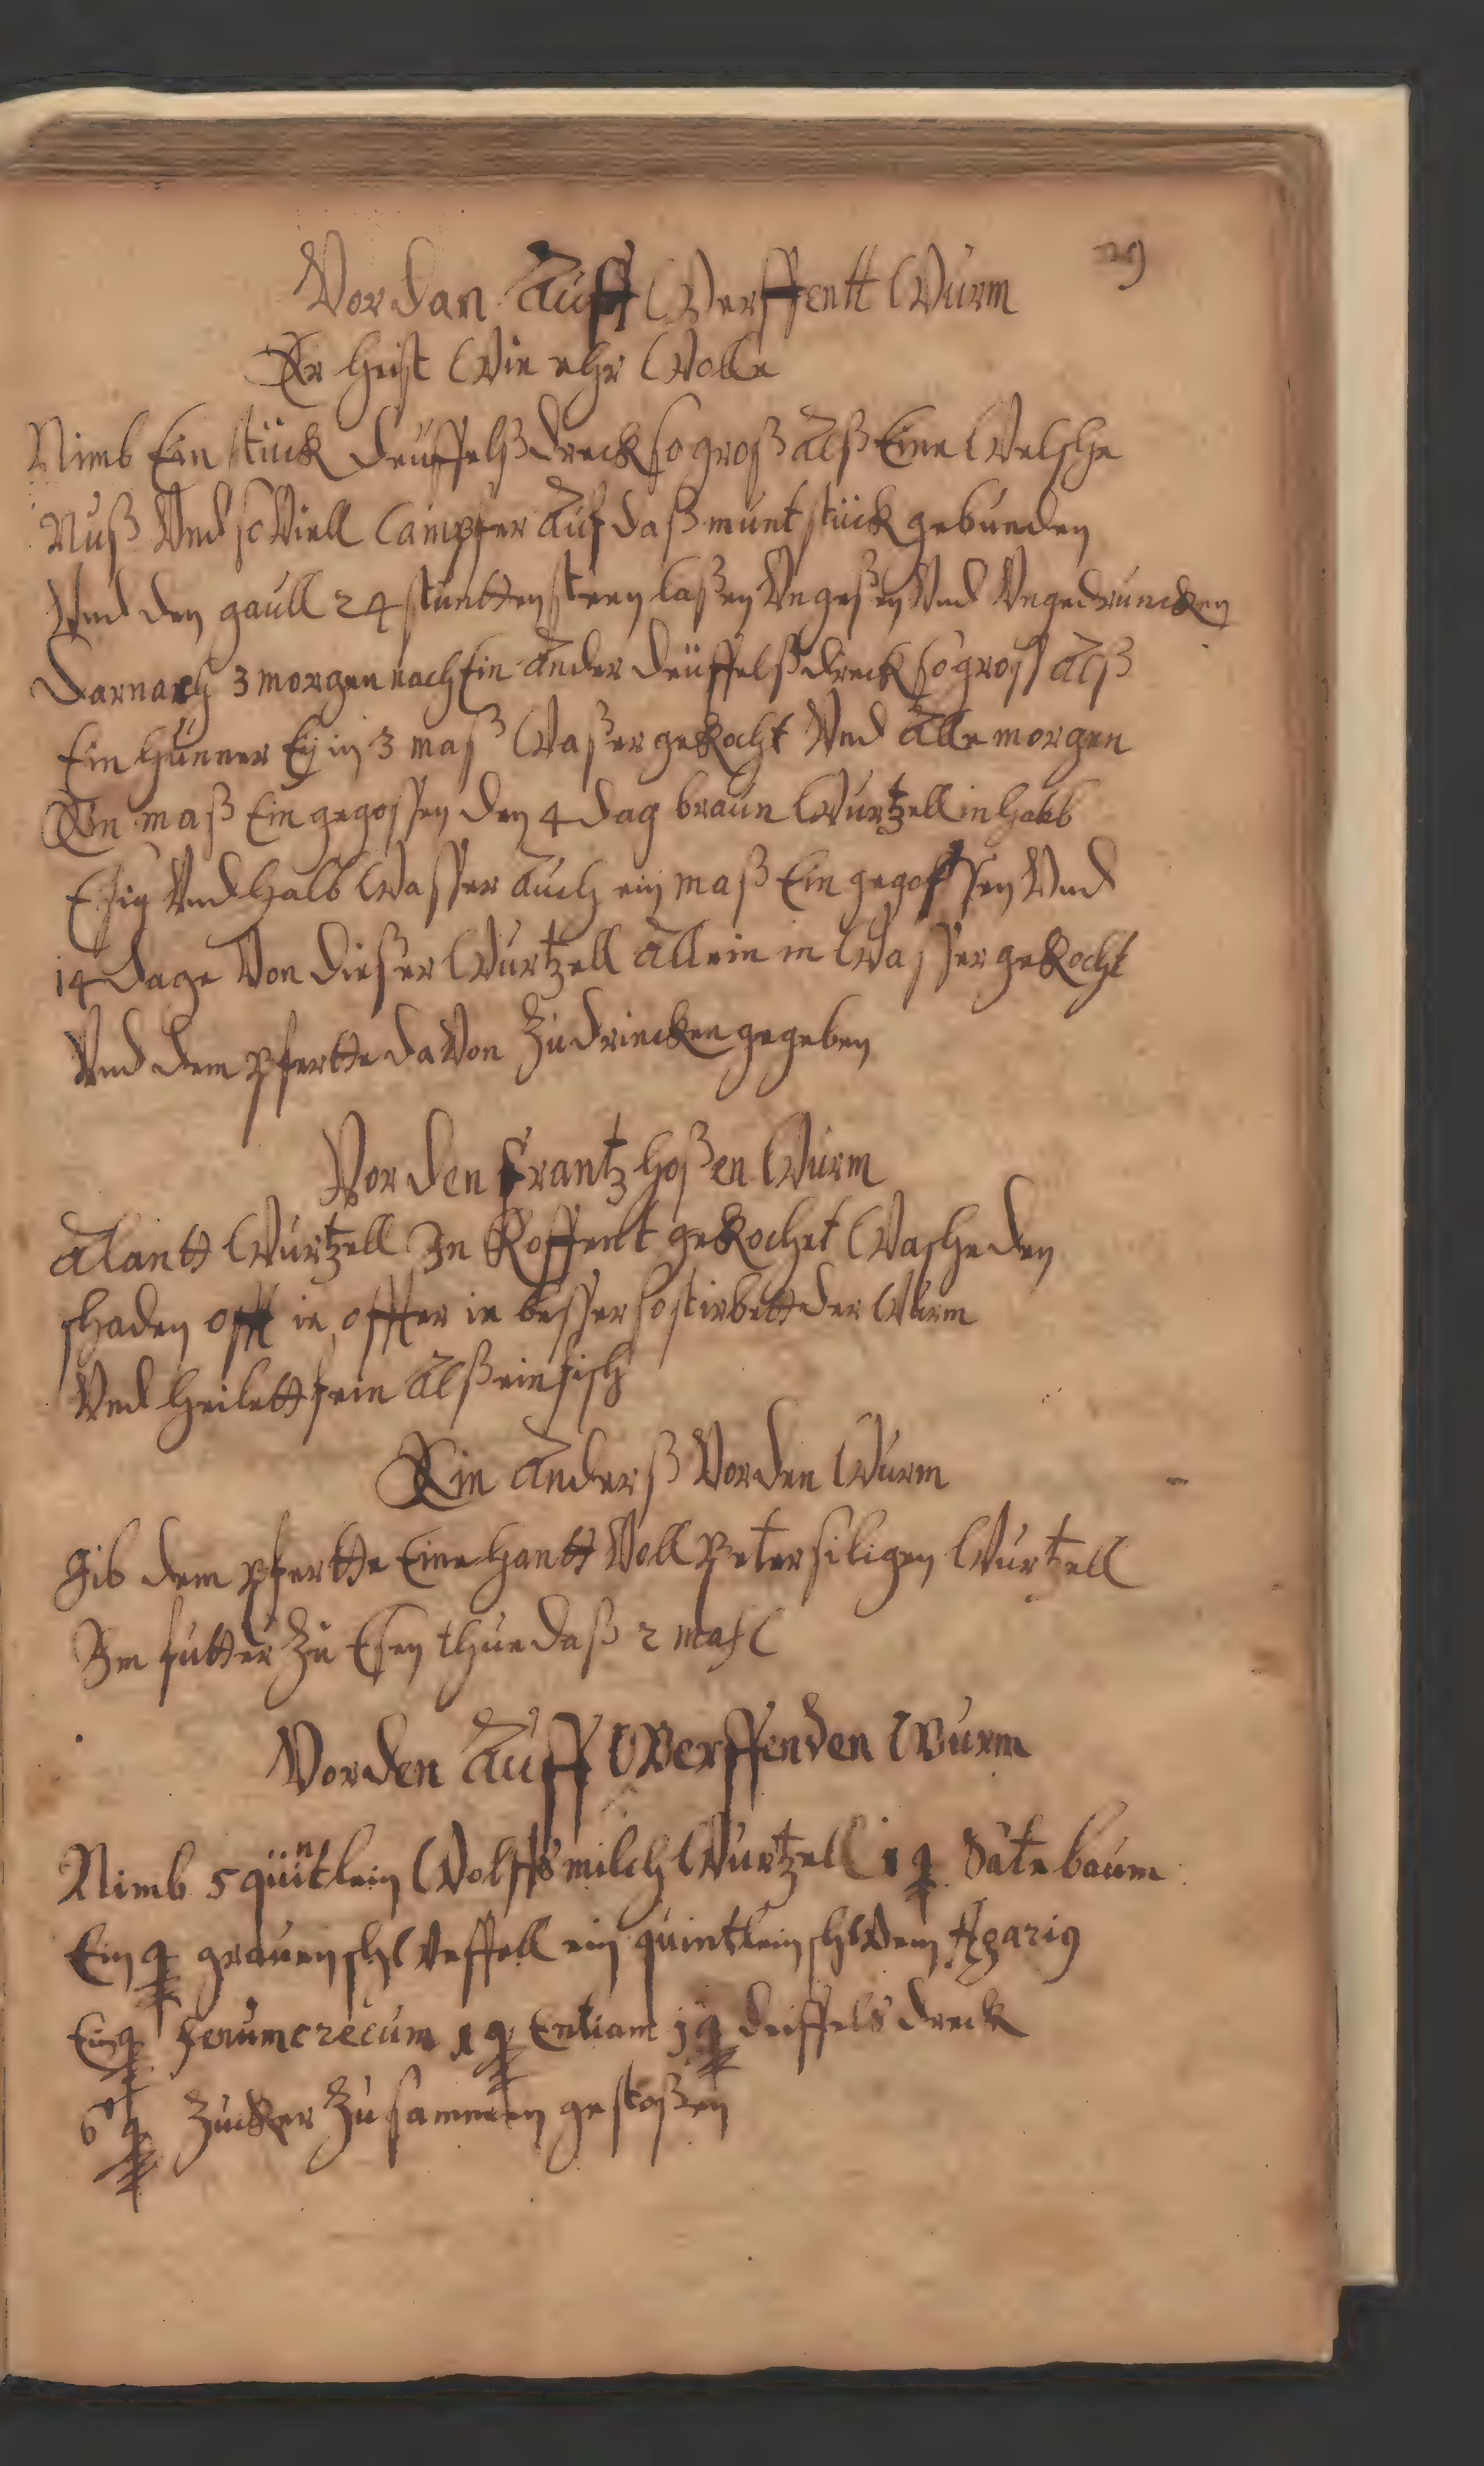 29
Vor dan Auff Werffentt Wurm
Er heist Wie ehr Wolle
Nimb Ein stück deuffelß dreck so groß alß Eine Welsche
Nuß Vnd so Viell Campfer Auf daß munt stück gebunden
Vnd den gaull 24 stuntten steen laßen Vngeßen Vnd Vngedruncken
Darnach 3 morgen nach Ein Ander deuffelß dreck so groß Alß
Ein hunner Ey in 3 maß Waßer gekocht Vnd Alle morgen
Ein maß Ein gegossen den 4 dag braun Wurtzell in halb
Eßig Vnd halb Wasser Auch ein maß Ein gegossen Vnd
14 dage Von dießer Wurtzell Allein in Wasser gekocht
Vnd dem pfertte da Von Zu drincken gegeben
Vor den frantzhoßen Wurm
Alantt Wurtzell In Koffent gekochet Wasche den
schaden offt ie offter ie besser so stirbett der Wurm
Vnd heilett fein Alß ein fisch
Ein Anderß Vor den Wurm
Gib dem pfertte Eine hantt Voll Petersiligen Wurtzell
Im futter Zu Eßen thue daß 2 mahl
Vor den Auff Werffenden Wurm
Nimb 5 quintlein Wolffsmilch Wurtzell 1 q Sátebaum
Ein q grauen schweffell ein quintlein schwem Agarig
Ein q fenumcrecum 1 q Entiam j q deiffels dreck
6 q Zucker Zusammen gestoßen